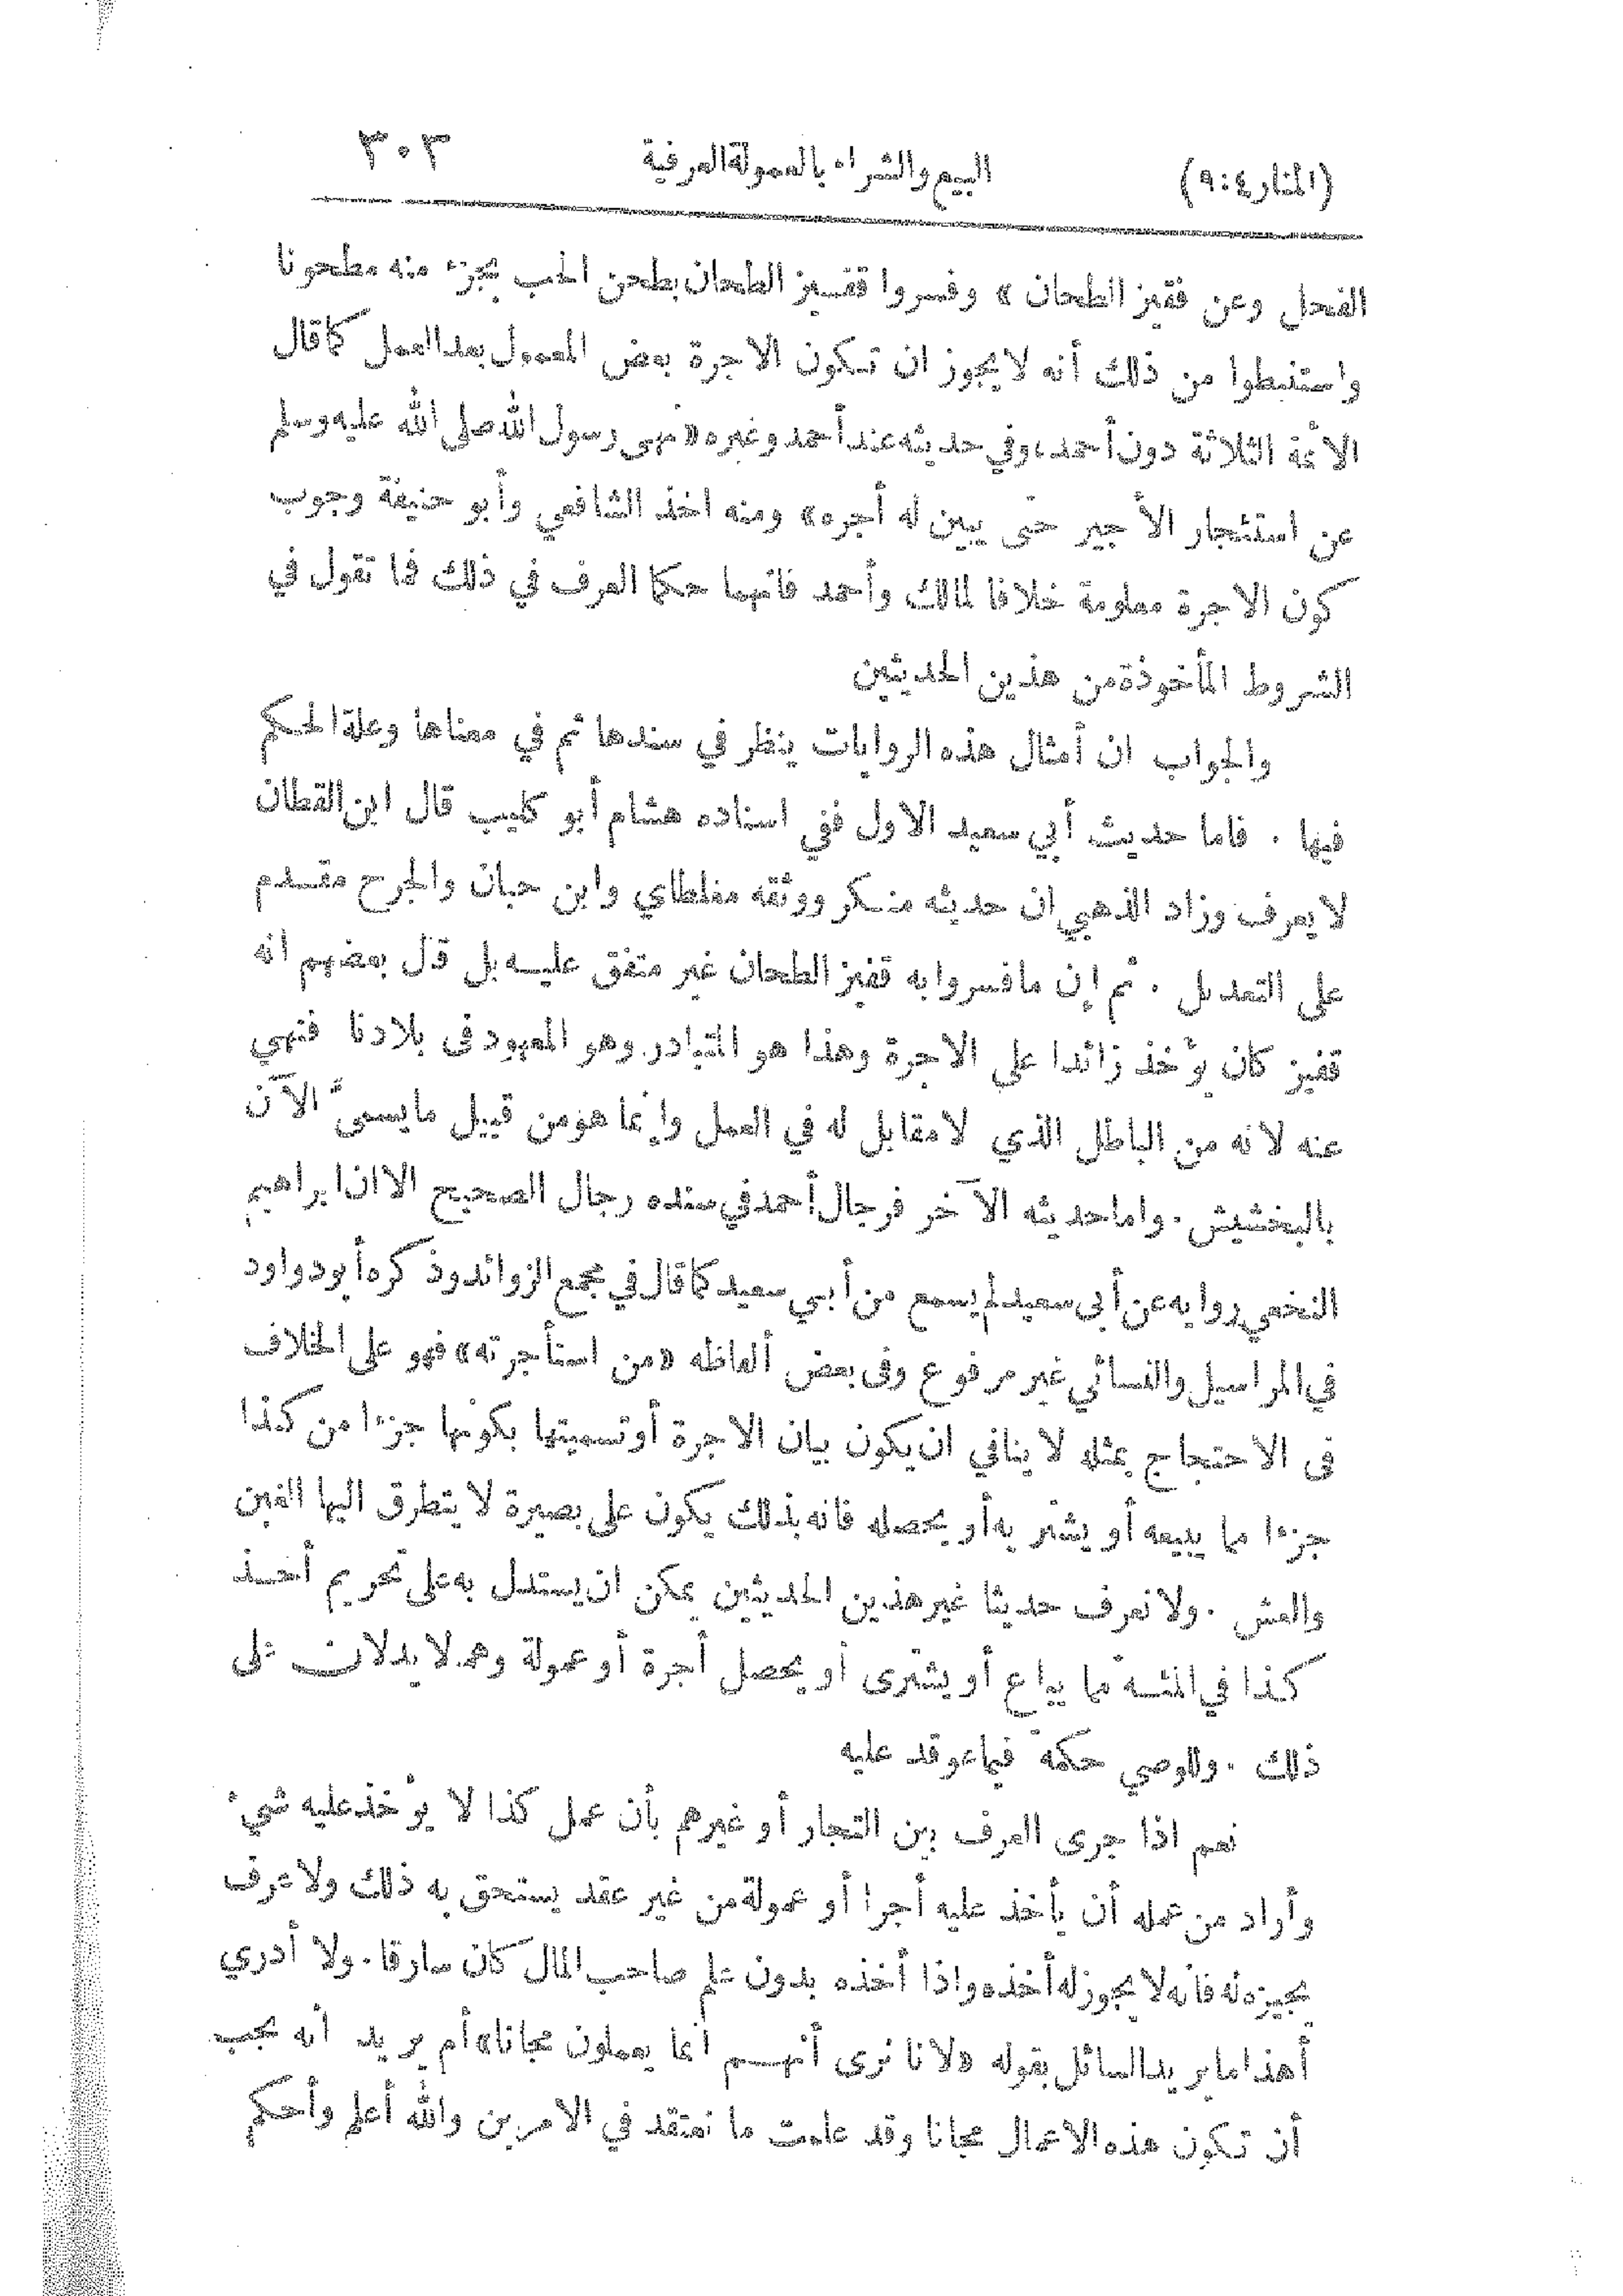 (المنار ٤:٩)
البيع والشراء بالعمولة العرفية
٣٠٣
الفحل وعن قفيز الطحان» وفسروا قفيز الطحان بطحن الحب بجزء منه مطحونا
واستنبطوا من ذلك أنه لا يجوز ان تكون الاجرة بعض المعمول بعد العمل كما قال
الائمة الثلاثة دون أحمد، وفي حديثه عند أحمد وغيره «نهى رسول الله صلى الله عليه وسلم
عن استئجار الأجير حتى يبين له أجره» ومنه اخذ الشافعي وأبو حنيفة وجوب
كون الاجرة معلومة خلافا لمالك وأحمد فانهما حكما العرف في ذلك فما تقول في
الشروط المأخوذة من هذين الحديثين
والجواب ان أمثال هذه الروايات ينظر في سندها ثم في معناها وعلة الحكم
فيها . فاما حديث أبي سعيد الاول ففي اسناده هشام أبو كليب قال ابن القطان
لا يعرف وزاد الذهبي ان حديثه منكر ووثقه مغلطاي وابن حبان والجرح مقدم
على التعديل . ثم إن ما فسروا به قفيز الطحان غير متفق عليه بل قال بعضهم انه
قفيز كان يؤخذ زائدا على الاجرة وهذا هو المتبادر وهو المعهود في بلادنا فنهي
عنه لانه من الباطل الذي لا مقابل له في العمل وإنما هو من قبيل ما يسمى الآن
بالبخشيش . واما حديثه الآخر فرجال أحمد في سنده رجال الصحيح الا ان ابراهيم
النخعي روايه عن أبي سعيد لم يسمع من أبي سعيد كما قال في مجمع الزوائد وذكره أبو دواود
في المراسيل والنسائي غير مرفوع وفي بعض ألفاظه «من استأجرته» فهو على الخلاف
في الاحتجاج بمثله لا ينافي ان يكون بيان الاجرة أو تسميتها بكونها جزءا من كذا
جزءا مما يبيعه أو يشتر به أو يحصله فانه بذلك يكون على بصيرة لا يتطرق اليها الغبن
والغش . ولا نعرف حديثا غير هذين الحديثين يمكن ان يستدل به على تحريم أخذ
كذا في المئة مما يباع أو يشترى أو يحصل أجرة أو عمولة وهما لا يدلان على
ذلك . وللوصي حكمه فيما عوقد عليه
نعم اذا جرى العرف بين التجار أو غيرهم بأن عمل كذا لا يؤخذ عليه شيء
وأراد من عمله أن يأخذ عليه أجرا أو عمولة من غير عقد يستحق به ذلك ولا عرف
يجيزه له فانه لا يجوز له أخذه واذا أخذه بدون علم صاحب المال كان سارقا . ولا أدري
أهذا ما يريد السائل بقوله «لانا نرى أنهم انما يعملون مجانا» أم يريد انه يجب
أن تكون هذه الاعمال مجانا وقد علمت ما نعتقد في الامرين والله أعلم وأحكم